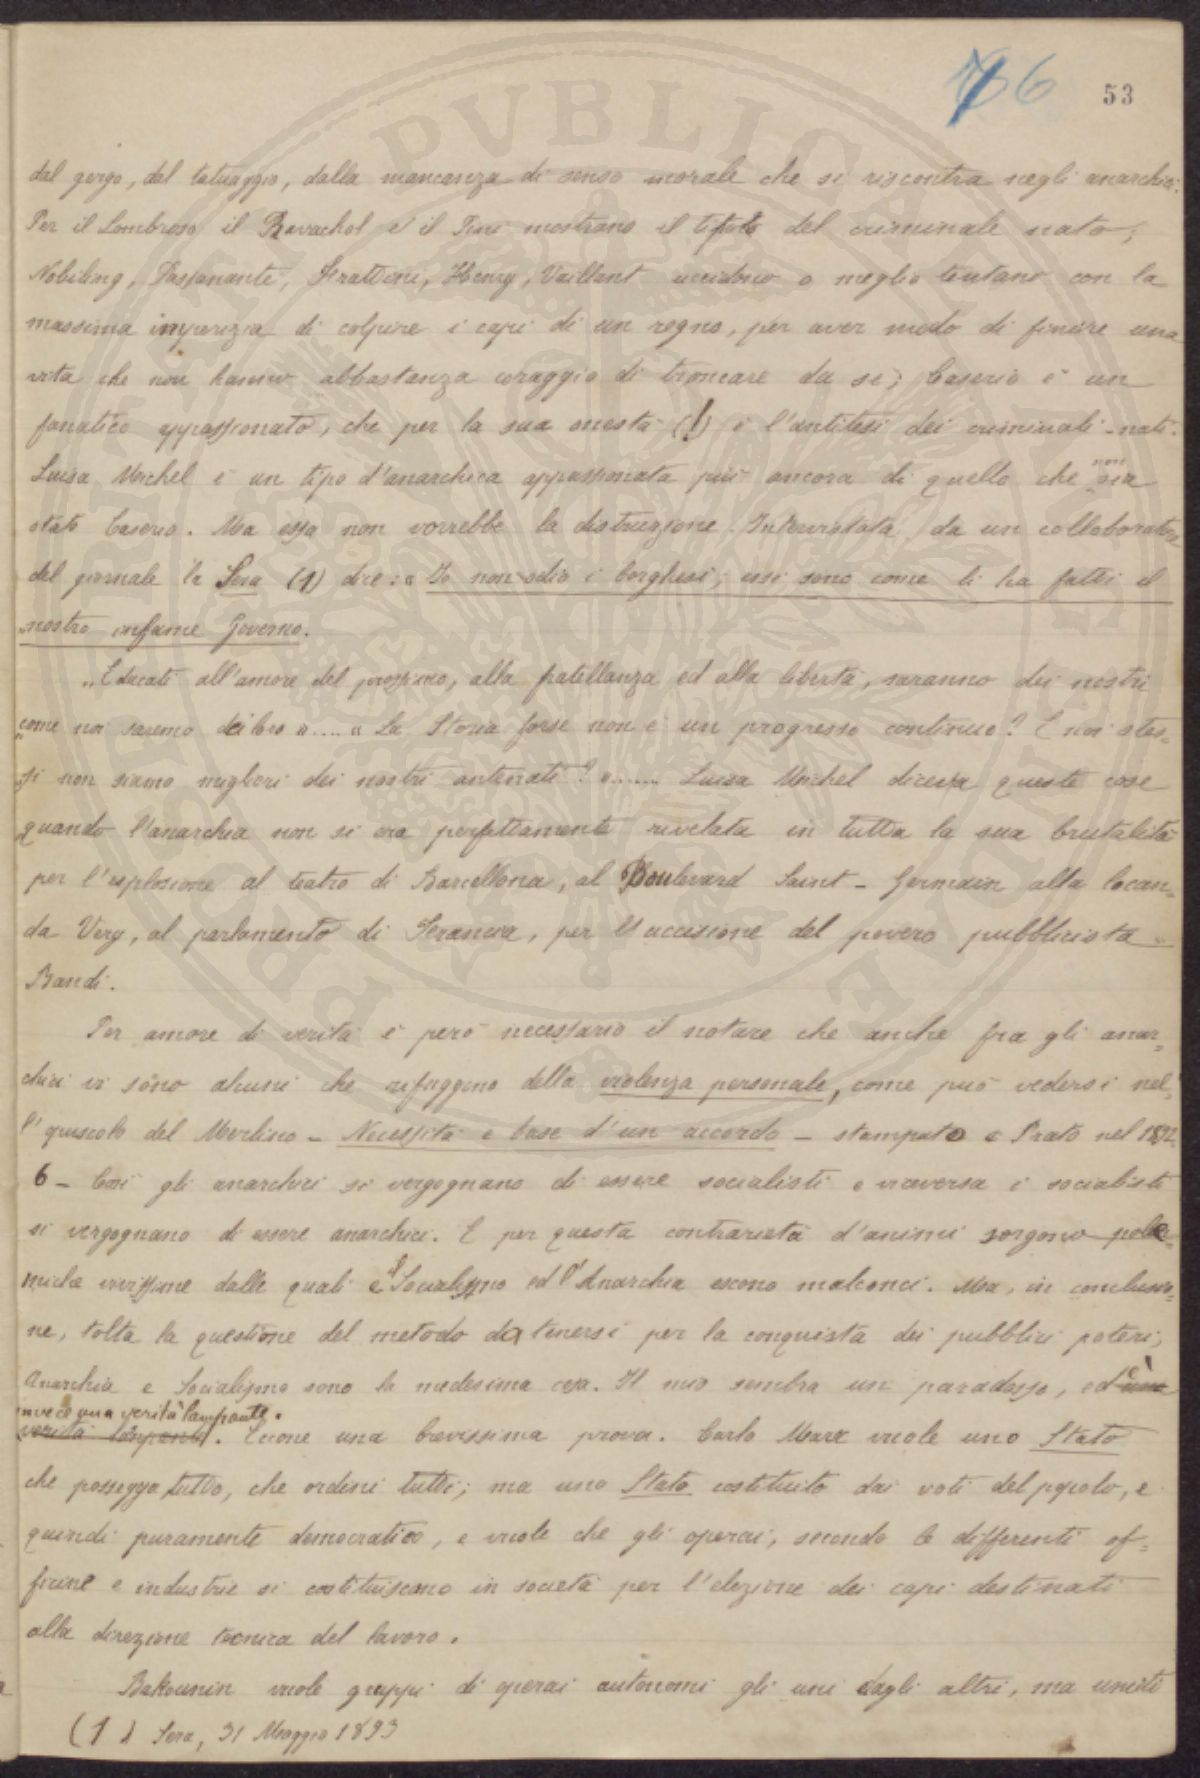 76 53
dal gergo, dal tatuaggio, dalla mancanza di senso morale che si riscontra negli anarchici.
Per il Lombroso il Ravachol e il Pini mostrano il tipo del criminale nato;
Nobiling, Passanante, Frattini, Henry, Vaillant uccidono o meglio tentano con la
massima imperizia di colpire i capi di un regno, per aver modo di finire una
vita che non hanno abbastanza coraggio di troncare da se; Caserio è un
fanatico appassionato, che per la sua onestà (!) è l'antitesi dei criminali-nati.
Luisa Michel è un tipo d'anarchica appassionata più ancora di quello che non sia
stato Caserio. Ma essa non vorrebbe la distruzione. Intervistata da un collaboratore
del giornale la Sera (1) dice: « Io non odio i borghesi; essi sono come li ha fatti il
"nostro infame Governo.
"Educati all'amore del prossimo, alla fratellanza ed alla libertà, saranno dei nostri
"come noi saremo dei loro ».... « La Storia forse non è un progresso continuo? E noi stes=
"si non siamo migliori dei nostri antenati? »....... Luisa Michel diceva queste cose
quando l'anarchia non si era perfettamente rivelata in tutta la sua brutalità
per l'esplosione al teatro di Barcellona, al Boulevard Saint-Germain alla locan=
da Very, al parlamento di Francia, per l'uccisione del povero pubblicista
Bandi.
Per amore di verità è però necessario il notare che anche fra gli anar=
chici vi sono alcuni che rifuggono della violenza personale, come può vedersi nel=
l'opuscolo del Merlino - Necessità e base d'un accordo - stampato a Prato nel 1892
6 - Così gli anarchici si vergognano di essere socialisti e viceversa i socialisti
si vergognano di essere anarchici. E per questa contrarietà d'animi sorgono pole=
miche vivissime dalle quali il Socialismo ed l'Anarchia escono malconci. Ma, in conclusio=
ne, tolta la questione del metodo da tenersi per la conquista dei pubblici poteri,
Anarchia e Socialismo sono la medesima cosa. Il mio sembra un paradosso, ed è una
invece una verità lampante.
verità lampante. Eccone una brevissima prova. Carlo Marx vuole uno Stato
che possegga tutto, che ordini tutti; ma uno Stato costituito dai voti del popolo, e
quindi puramente democratico, e vuole che gli operai, secondo le differenti of=
ficine e industrie si costituiscono in società per l'elezione dei capi destinati
alla direzione tecnica del lavoro.
Bakounin vuole gruppi di operai autonomi gli uni dagli altri, ma uniti
(1) Sera, 31 Maggio 1893